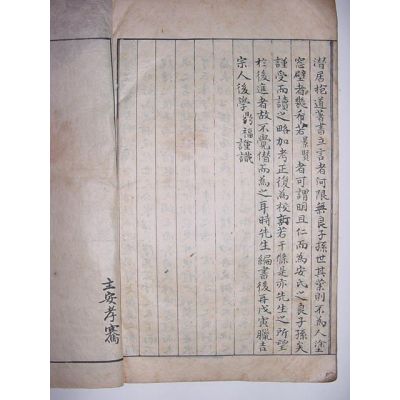 潛居抱道著書立言者何限無良子孫世其業則不為人塗
窓壁者幾希若景賢者可謂明且仁而為安氏之良子孫矣
謹受而讀之略加考正後為校訂若干條是亦先生之所望
於後進者故不覺僭而為之耳時先生編書後再戊寅臘吉
宗人後學鼎福謹識
主安孝